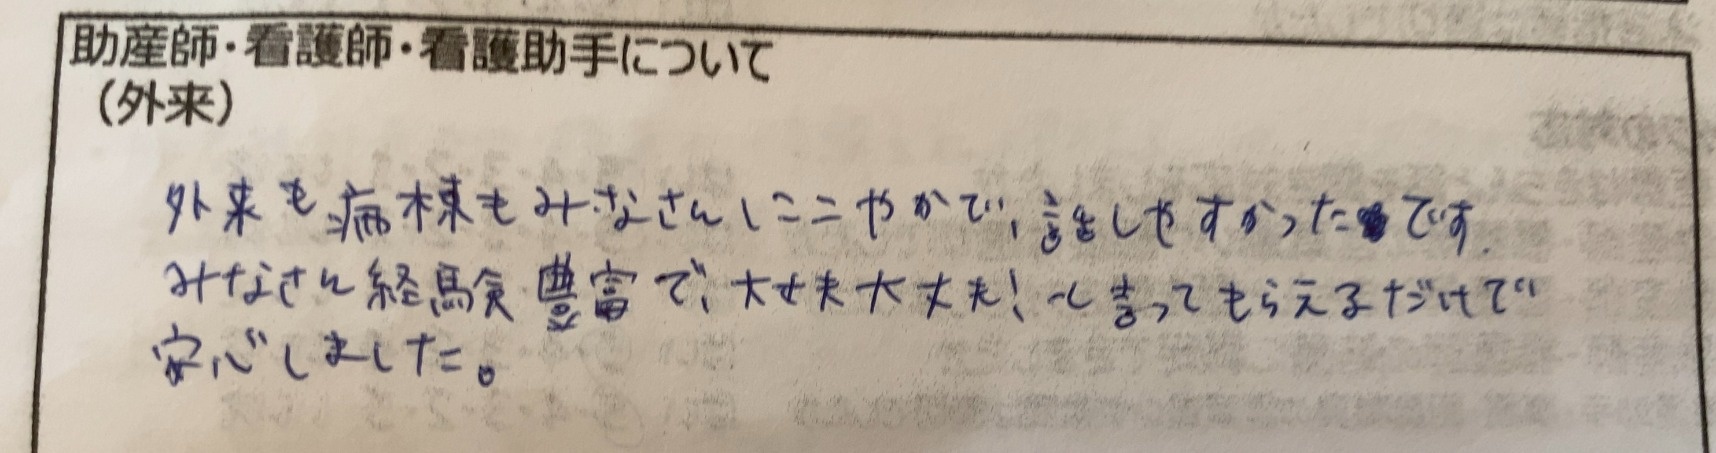 助産師・看護師・看護助手について
(外来)
外来も病棟もみなさんにこやかで、話しやすかったです。
みなさん経験豊富で、大丈夫大丈夫!と言ってもらえるだけで
安心しました。